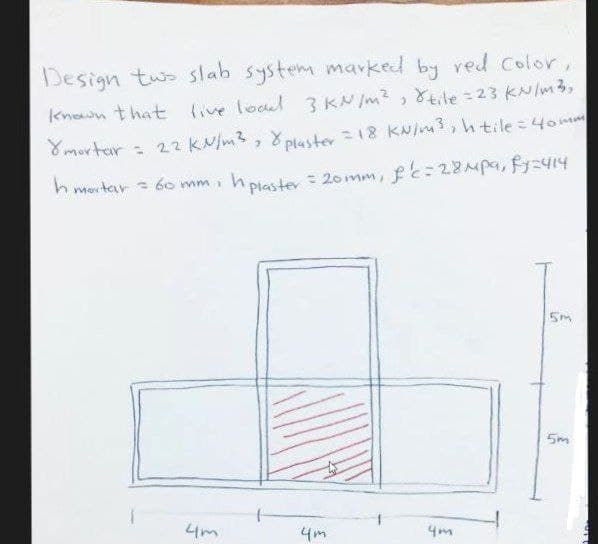 Design two slab system marked by red color,
known that live load 3 KN/m², γtile = 23 KN/m³,
γmortar = 22 KN/m³, γplaster = 18 KN/m³, h tile = 40mm
h mortar = 60 mm, h plaster = 20mm, f'c = 28 Mpa, fy=414
5m
5m
4m 4m 4m